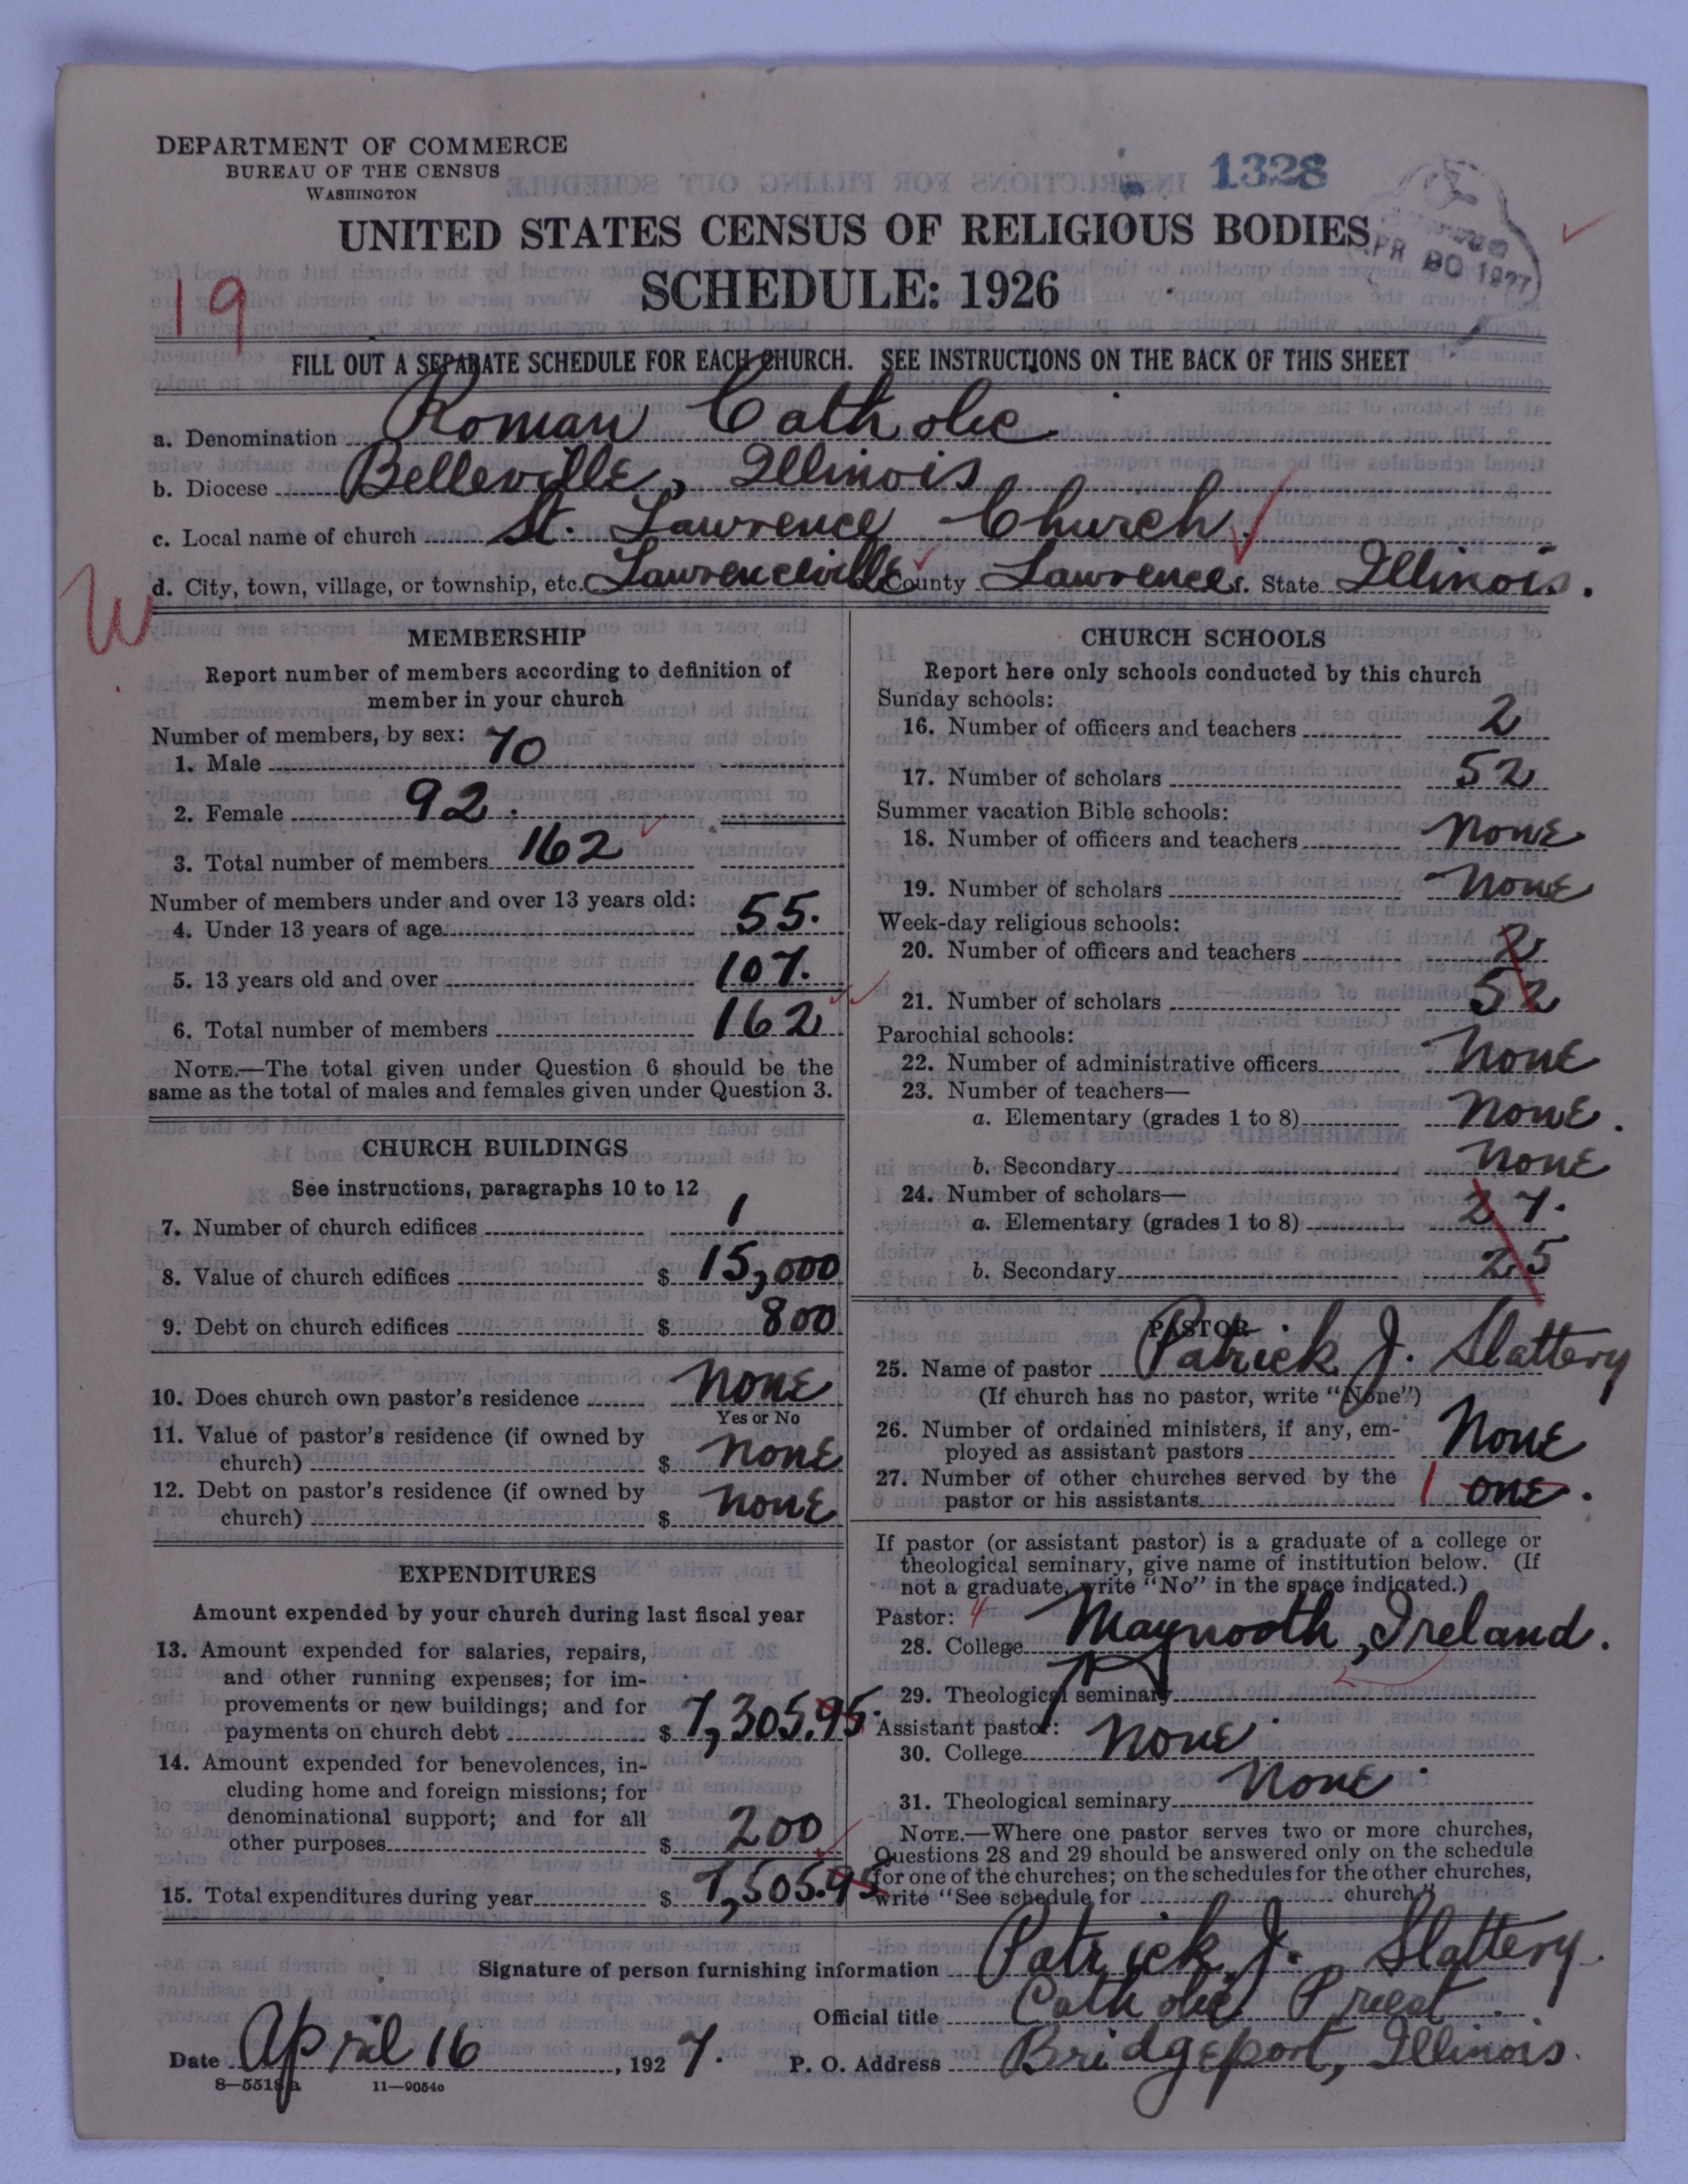 DEPARTMENT OF COMMERCE
BUREAU OF THE CENSUS
WASHINGTON
1328
UNITED STATES CENSUS OF RELIGIOUS BODIES
APR 30 1927
SCHEDULE: 1926
19
FILL OUT A SEPARATE SCHEDULE FOR EACH CHURCH. SEE INSTRUCTIONS ON THE BACK OF THIS SHEET
a. Denomination Roman Catholic
b. Diocese Belleville, Illinois
c. Local name of church St. Lawrence Church.
d. City, town, village, or township, etc. Lawrenceville County Lawrence f. State Illinois.
W
MEMBERSHIP
Report number of members according to definition of
member in your church
Number of members, by sex:
1. Male 70
2. Female 92.
3. Total number of members 162
Number of members under and over 13 years old:
4. Under 13 years of age 55.
5. 13 years old and over 107.
6. Total number of members 162
NOTE.—The total given under Question 6 should be the
same as the total of males and females given under Question 3.
CHURCH BUILDINGS
See instructions, paragraphs 10 to 12
7. Number of church edifices 1
8. Value of church edifices $ 15,000
9. Debt on church edifices $ 800
10. Does church own pastor's residence none
Yes or No
11. Value of pastor's residence (if owned by
church) $ none
12. Debt on pastor's residence (if owned by
church) $ none
EXPENDITURES
Amount expended by your church during last fiscal year
13. Amount expended for salaries, repairs,
and other running expenses; for im-
provements or new buildings; and for
payments on church debt $ 7,305.95.
14. Amount expended for benevolences, in-
cluding home and foreign missions; for
denominational support; and for all
other purposes $ 200
15. Total expenditures during year $ 7,505.95
CHURCH SCHOOLS
Report here only schools conducted by this church
Sunday schools:
16. Number of officers and teachers 2
17. Number of scholars 52
Summer vacation Bible schools:
18. Number of officers and teachers none
19. Number of scholars none
Week-day religious schools:
20. Number of officers and teachers 2
21. Number of scholars 52
Parochial schools:
22. Number of administrative officers none
23. Number of teachers—
a. Elementary (grades 1 to 8) none.
b. Secondary none
24. Number of scholars—
a. Elementary (grades 1 to 8) 27.
b. Secondary 25
PASTOR
25. Name of pastor Patrick J. Slattery
(If church has no pastor, write "None")
26. Number of ordained ministers, if any, em-
ployed as assistant pastors None
27. Number of other churches served by the
pastor or his assistants 1 one.
If pastor (or assistant pastor) is a graduate of a college or
theological seminary, give name of institution below. (If
not a graduate, write "No" in the space indicated.)
Pastor: 4
28. College Maynooth, Ireland.
29. Theological seminary
Assistant pastor:
30. College none
31. Theological seminary none
NOTE.—Where one pastor serves two or more churches,
Questions 28 and 29 should be answered only on the schedule
for one of the churches; on the schedules for the other churches,
write "See schedule for church."
Signature of person furnishing information Patrick J. Slattery.
Official title Catholic Priest.
Date April 16, 1927. P. O. Address Bridgeport, Illinois.
8—5518a 11—9054c